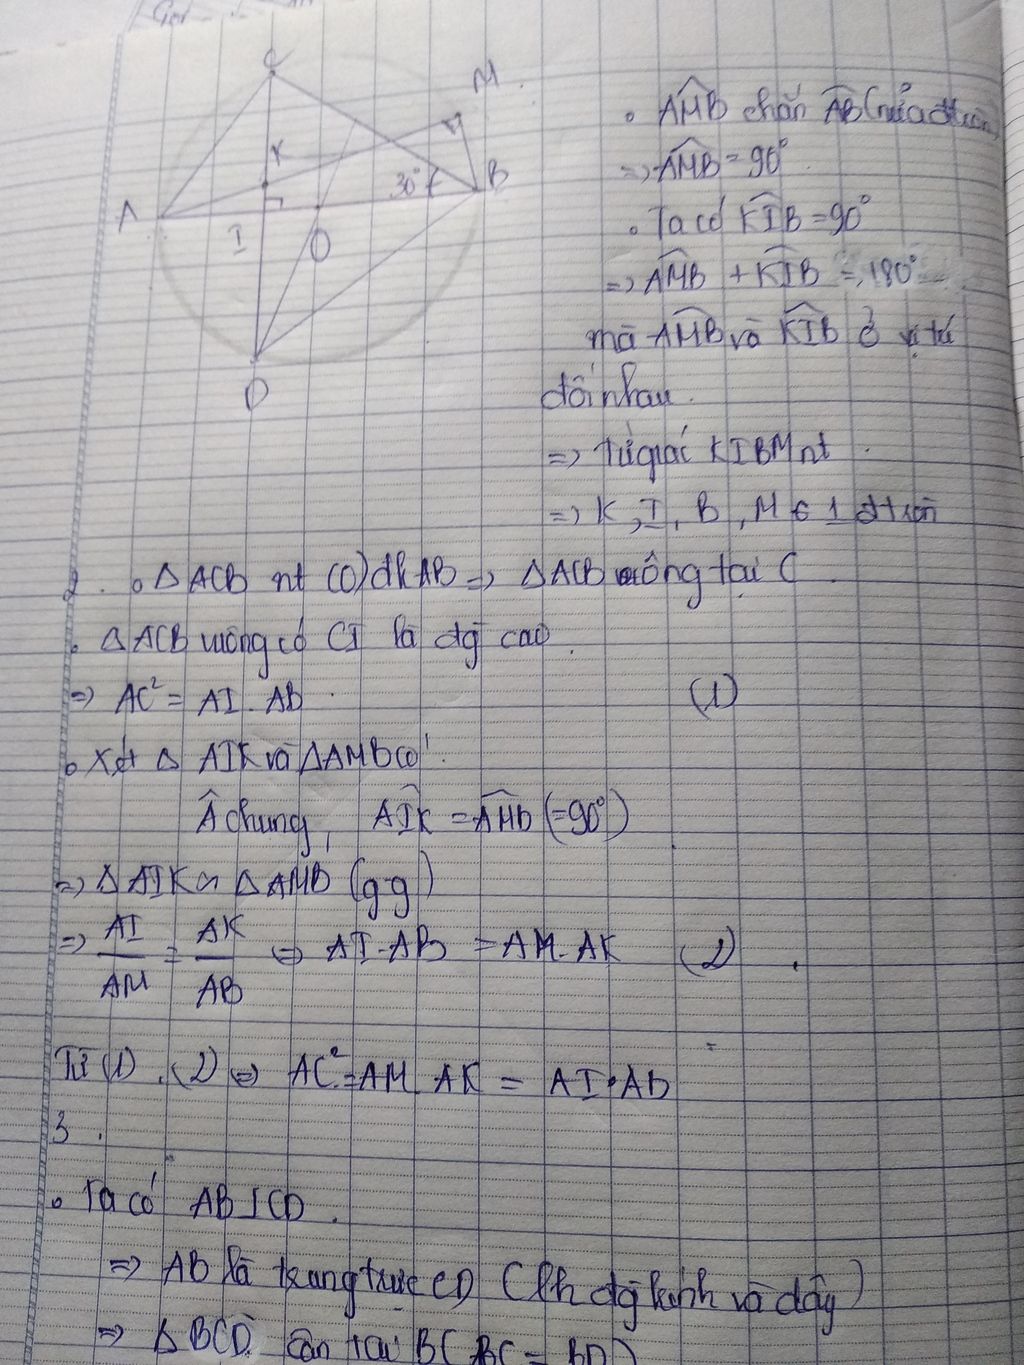 C
M
K
30°
A
B
I
O
D
• AMB chắn AB (nửa đtròn)
=> AMB = 90°
• Ta có KIB = 90°
=> AMB + KIB = 180°
mà AMB và KIB ở vị trí
đối nhau.
=> Tứ giác KIBM nt
=> K, I, B, M ∈ 1 đtròn
2. • Δ ACB nt (O) đk AB => Δ ACB vuông tại C
• Δ ACB vuông có CI là đg cao
=> AC² = AI . AB (1)
• Xét Δ AIK và Δ AMB có:
 chung, AIK = AMB (=90°)
=> Δ AIK ∽ Δ AMB (g.g)
=> AI/AM = AK/AB => AI . AB = AM . AK (2)
Từ (1), (2) => AC² = AM . AK = AI . AB
3.
• Ta có AB ⊥ CD.
=> AB là trung trực CD ( đg kính và dây)
=> Δ BCD cân tại B ( BC = BD)